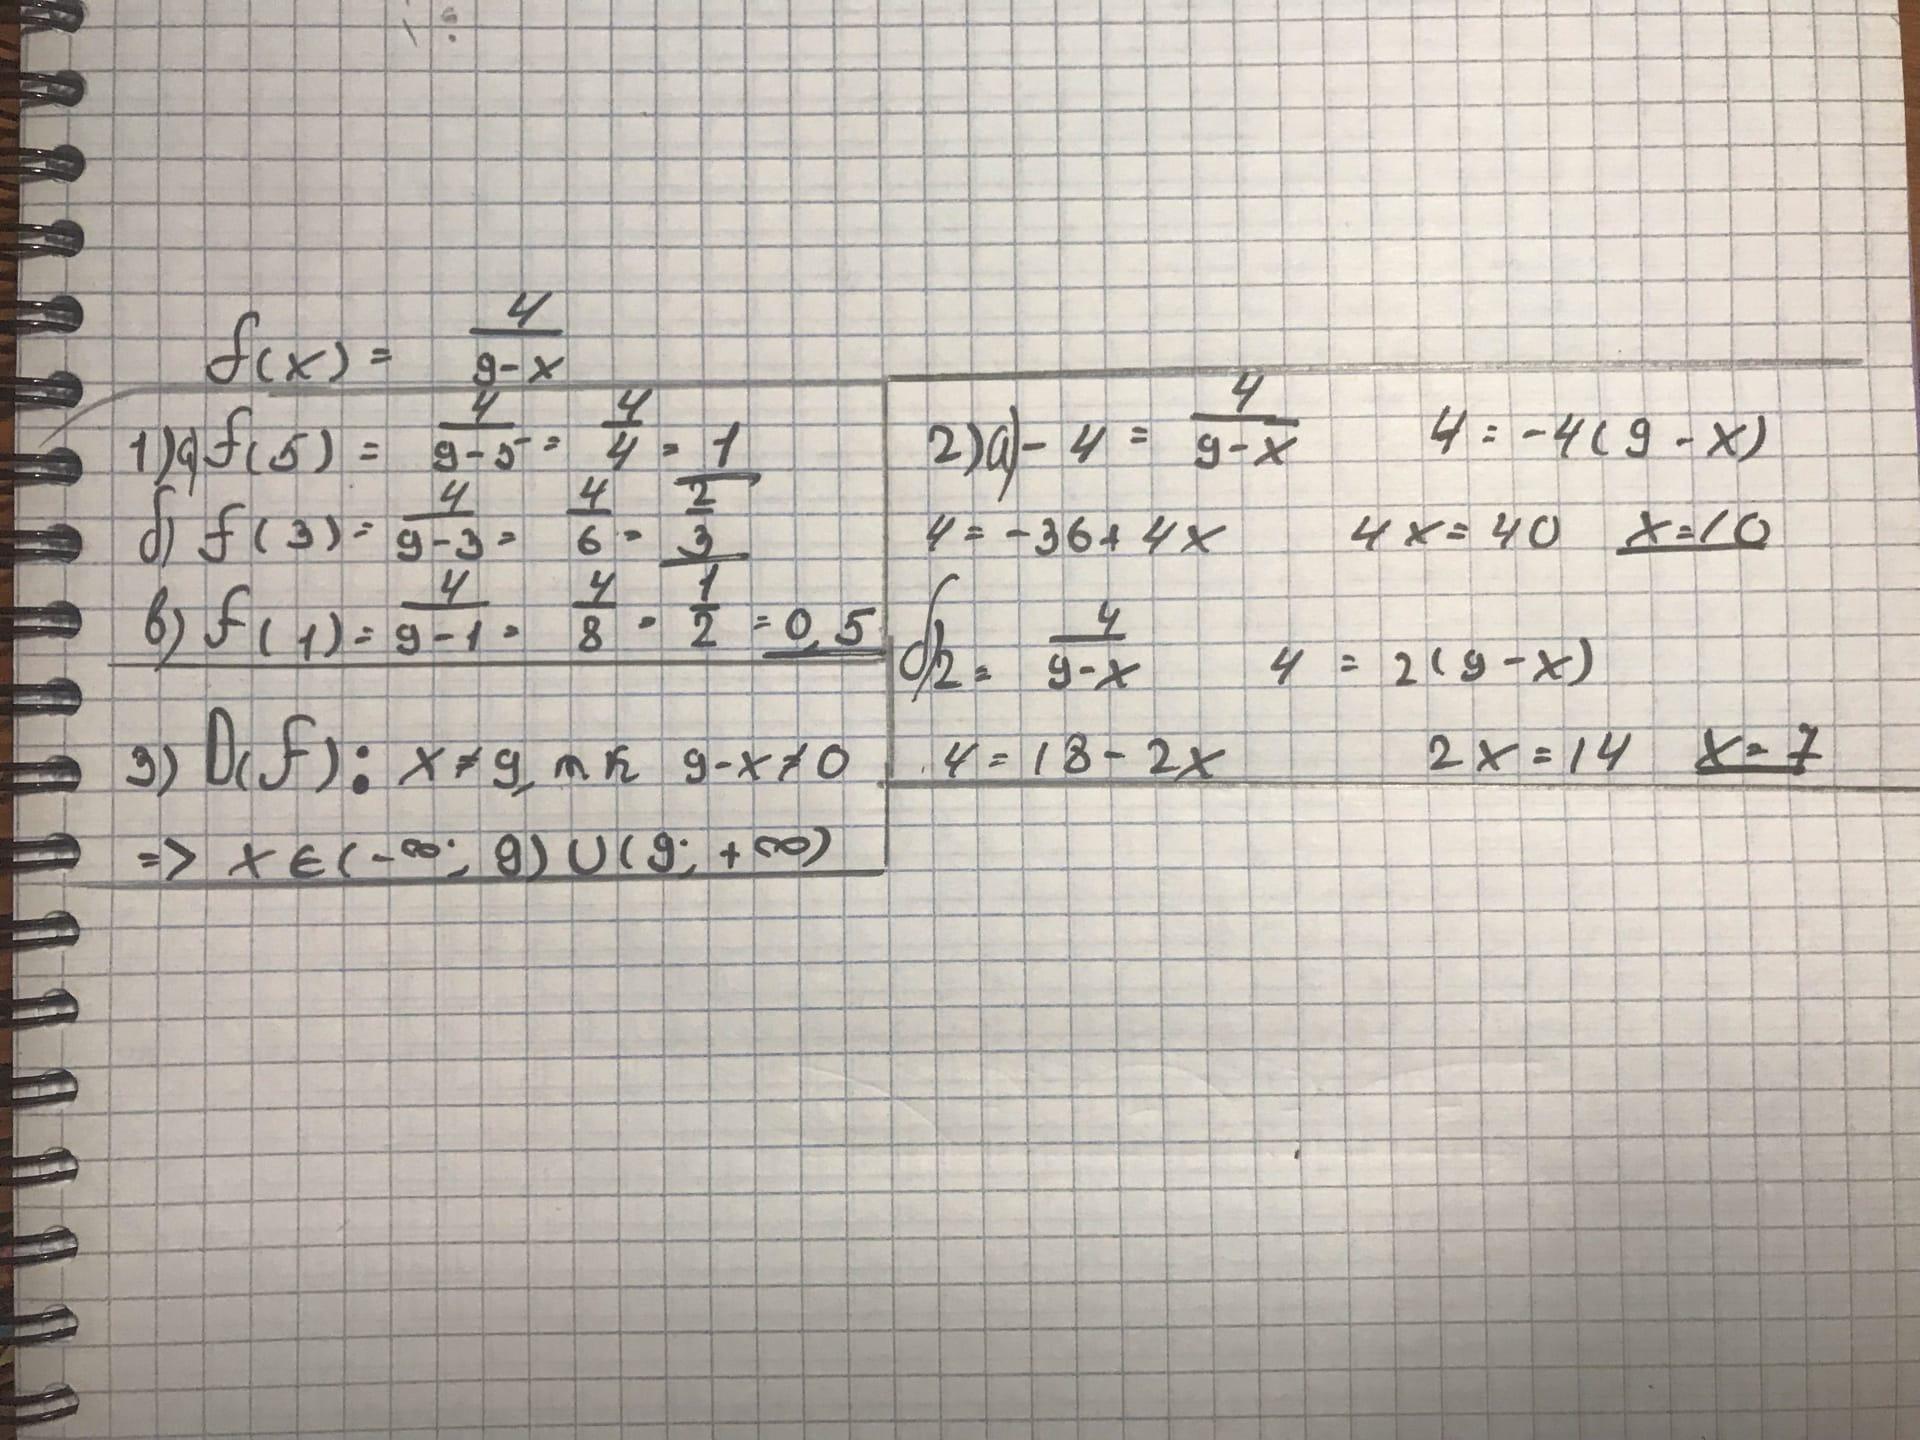 f(x) = 4/(9-x)
1) a) f(5) = 4/(9-5) = 4/4 = 1
б) f(3) = 4/(9-3) = 4/6 = 2/3
в) f(1) = 4/(9-1) = 4/8 = 1/2 = 0,5
3) D(f): x≠9, т к 9-x≠0
=> x∈(-∞; 9)∪(9; +∞)
2) a) -4 = 4/(9-x) 4 = -4(9-x)
4 = -36+4x 4x = 40 x=10
б) 2 = 4/(9-x) 4 = 2(9-x)
4 = 18-2x 2x = 14 x=7